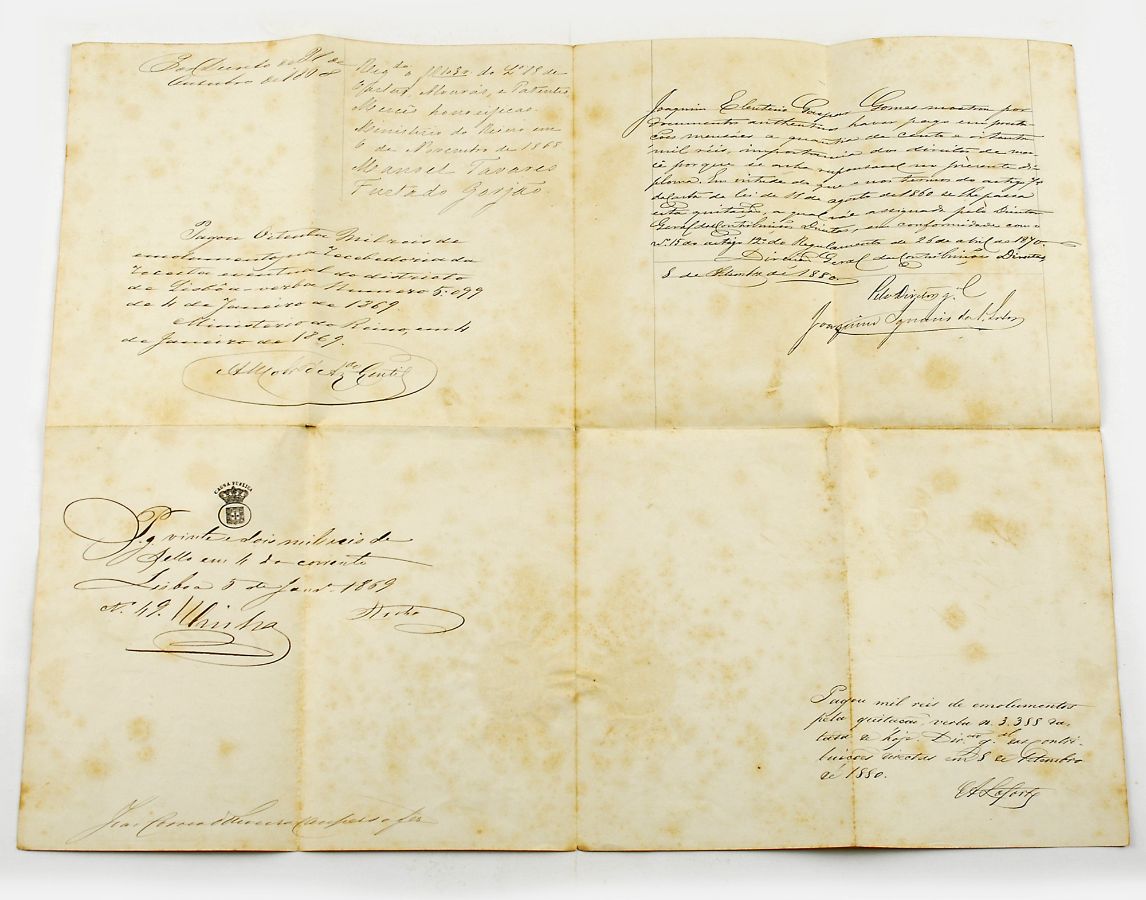 Por Decreto de 21 de
Outubro de 1868
Reg.do a fl 032 do L.o 18 de
Cartas, Alvarás, e Patentes
Mercês honorificas.
Ministerio do Reino em
6 de Novembro de 1868
Manoel Tavares
Furtado Gorjão.
Pagou Oitenta Mil reis de
emolumentos, na Recebedoria da
Receita eventual do districto
de Lisboa - verba Numero 5:099
de 4 de Janeiro de 1869
Ministerio do Reino, em 4
de Janeiro de 1869.
Gentil
CAUSA PUBLICA
P.g vinte e dois mil reis de
Sello em 4 do corrente
Lisboa 5 de Jan.o 1869
N.o 49.
Rocha
Joaquim Eleuterio Gaspar Gomes mostra por
documentos authenticos haver pago em presta-
ções mensaes a quantia de cento e oitenta
mil réis, importancia dos direitos de mer-
cê porque se acha responsavel no presente di-
ploma. Em virtude do que e nos termos do artigo 7o
da carta de lei de 11 de agosto de 1860 se lhe passa
esta quitação, a qual vae assignada pelo Director
Geral das Contribuições Directas, em conformidade com o
n.o 15 do artigo 12o do Regulamento de 26 de abril de 1870
Direcção Geral das Contribuições Directas,
8 de Setembro de 1880.
Pelo Director g.l
Joaquim Ignacio de
Pagou mil reis de emolumentos
pela quitação, verba n.o 3.388 da-
tada de hoje. Dir.ção g.al das contri-
buições directas em 8 de Setembro
de 1880.